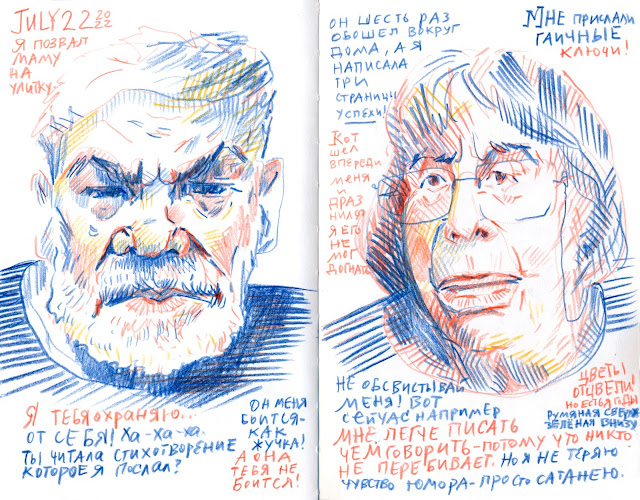 JULY 22 2022
Я ПОЗВАЛ
МАМУ
НА
УЛИТКУ-
Я ТЕБЯ ОХРАНЯЮ...
ОТ СЕБЯ! ХА-ХА-ХА.
ТЫ ЧИТАЛА СТИХОТВОРЕНИЕ
КОТОРОЕ Я ПОСЛАЛ?
ОН МЕНЯ
БОИТСЯ-
КАК
ЖУЧКА!
А ОНА
ТЕБЯ НЕ
БОИТСЯ!
ОН ШЕСТЬ РАЗ
ОБОШЕЛ ВОКРУГ
ДОМА, А Я
НАПИСАЛА
ТРИ
СТРАНИЦЫ
УСПЕХИ!
КОТ
ШЕЛ
ВПЕРЕДИ
МЕНЯ
И
ДРАЗ
НИЛСЯ
Я ЕГО
НЕ
МОГ
ДОГНАТЬ
МНЕ ПРИСЛАЛИ
ГАИЧНЫЕ
КЛЮЧИ!
НЕ ОБСВИСТЫВАЙ
МЕНЯ! ВОТ
СЕЙЧАС НАПРИМЕР
МНЕ ЛЕГЧЕ ПИСАТЬ
ЧЕМ ГОВОРИТЬ-ПОТОМУ ЧТО НИКТО
НЕ ПЕРЕБИВАЕТ. НО Я НЕ ТЕРЯЮ
ЧУВСТВО ЮМОРА-ПРОСТО САТАНЕЮ.
ЦВЕТЫ
ОТЦВЕЛИ
НО ЕСТЬ ЯГОДЫ
РУМЯНАЯ СВЕРХУ
ЗЕЛЕНАЯ ВНИЗУ